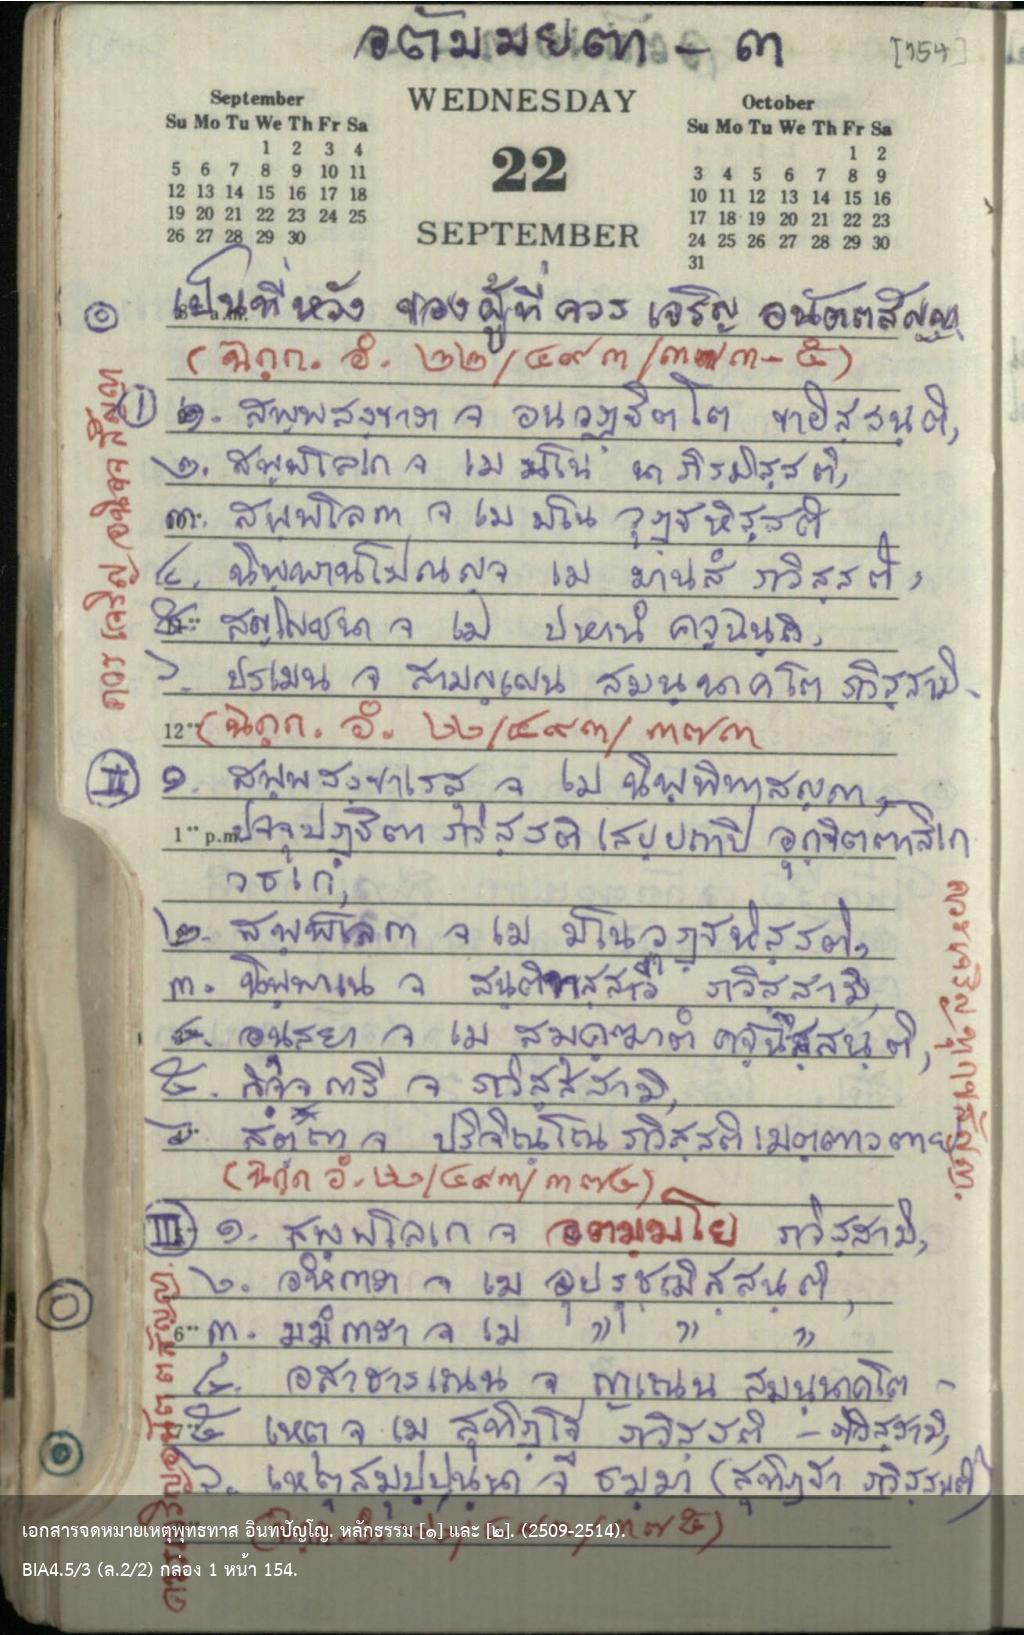 อตัมมยตา - ๓
[154]
September
Su Mo Tu We Th Fr Sa
1 2 3 4
5 6 7 8 9 10 11
12 13 14 15 16 17 18
19 20 21 22 23 24 25
26 27 28 29 30
WEDNESDAY
22
SEPTEMBER
October
Su Mo Tu We Th Fr Sa
1 2
3 4 5 6 7 8 9
10 11 12 13 14 15 16
17 18 19 20 21 22 23
24 25 26 27 28 29 30
31
เป็นที่หวัง ของผู้ที่ควร เจริญ อนัตตสัญญา
(ฉกฺก. อํ. ๒๒/๔๙๓/๓๗๓-๕)
ควร เจริญ อนิจจสัญญา
I ๑. สพฺพสงฺขารา จ อนวฏฺฐิตโต ขายิสฺสนฺติ,
๒. สพฺพโลเก จ เม มโน นาภิรมิสฺสติ,
๓. สพฺพโลกา จ เม มโน วุฏฺฐหิสฺสติ
๔. นิพฺพานโปณญฺจ เม มานสํ ภวิสฺสติ,
๕. สญฺโญชนา จ เม ปหานํ คจฺฉนฺติ,
๖. ปรเมน จ สามญฺเญน สมนฺนาคโต ภวิสฺสามิ.
12
(ฉกฺก. อํ. ๒๒/๔๙๓/๓๗๓
II ๑. สพฺพสงฺขาเรสุ จ เม นิพฺพิทาสญฺญา
1 p.m.
ปจฺจุปฏฺฐิตา ภวิสฺสติ เสยฺยถาปิ อุกฺขิตฺตาสิเก
วธเก,
๒. สพฺพโลกา จ เม มโน วุฏฺฐหิสฺสติ,
๓. นิพฺพาเน จ สนฺติทสฺสาวี ภวิสฺสามิ,
๔. อนุสยา จ เม สมุคฺฆาตํ คจฺฉิสฺสนฺติ,
๕. กิจฺจการี จ ภวิสฺสามิ,
๖. สตฺถา จ ปริจิณฺโณ ภวิสฺสติ เมตฺตาวตาย
(ฉกฺก อํ. ๒๒/๔๙๓/๓๗๔)
ควรเจริญ ทุกขสัญญา.
III ๑. สพฺพโลเก จ อตมฺมโย ภวิสฺสามิ,
๒. อหํการา จ เม อุปรุชฺฌิสฺสนฺติ,
6
๓. มมํการา จ เม " " "
๔. อสาธารเณน จ ญาเณน สมนฺนาคโต -
๕ เหตุ จ เม สุทิฏฺโฐ ภวิสฺสติ - ภวิสฺสามิ,
๖. เหตุสมุปฺปนฺนา จ ธมฺมา (สุทิฏฺฐา ภวิสฺสนฺติ)
ควรเจริญอนัตตสัญญา.
เอกสารจดหมายเหตุพุทธทาส อินทปัญโญ. หลักธรรม [๑] และ [๒]. (2509-2514).
BIA4.5/3 (ล.2/2) กล่อง 1 หน้า 154.